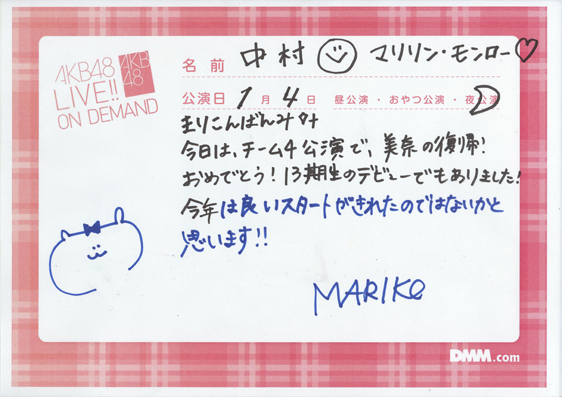 AKB48
LIVE!!
ON DEMAND
AKB
48
名 前 中村 マリリン・モンロー♡
公演日 1月4日 昼公演・おやつ公演・夜公演
まりこんばんみ
今日は、チーム4公演で、美奈の復帰!
おめでとう!13期生のデビューでもありました!
今年は良いスタートがきれたのではないかと
思います!!
MARIKO
DMM.com